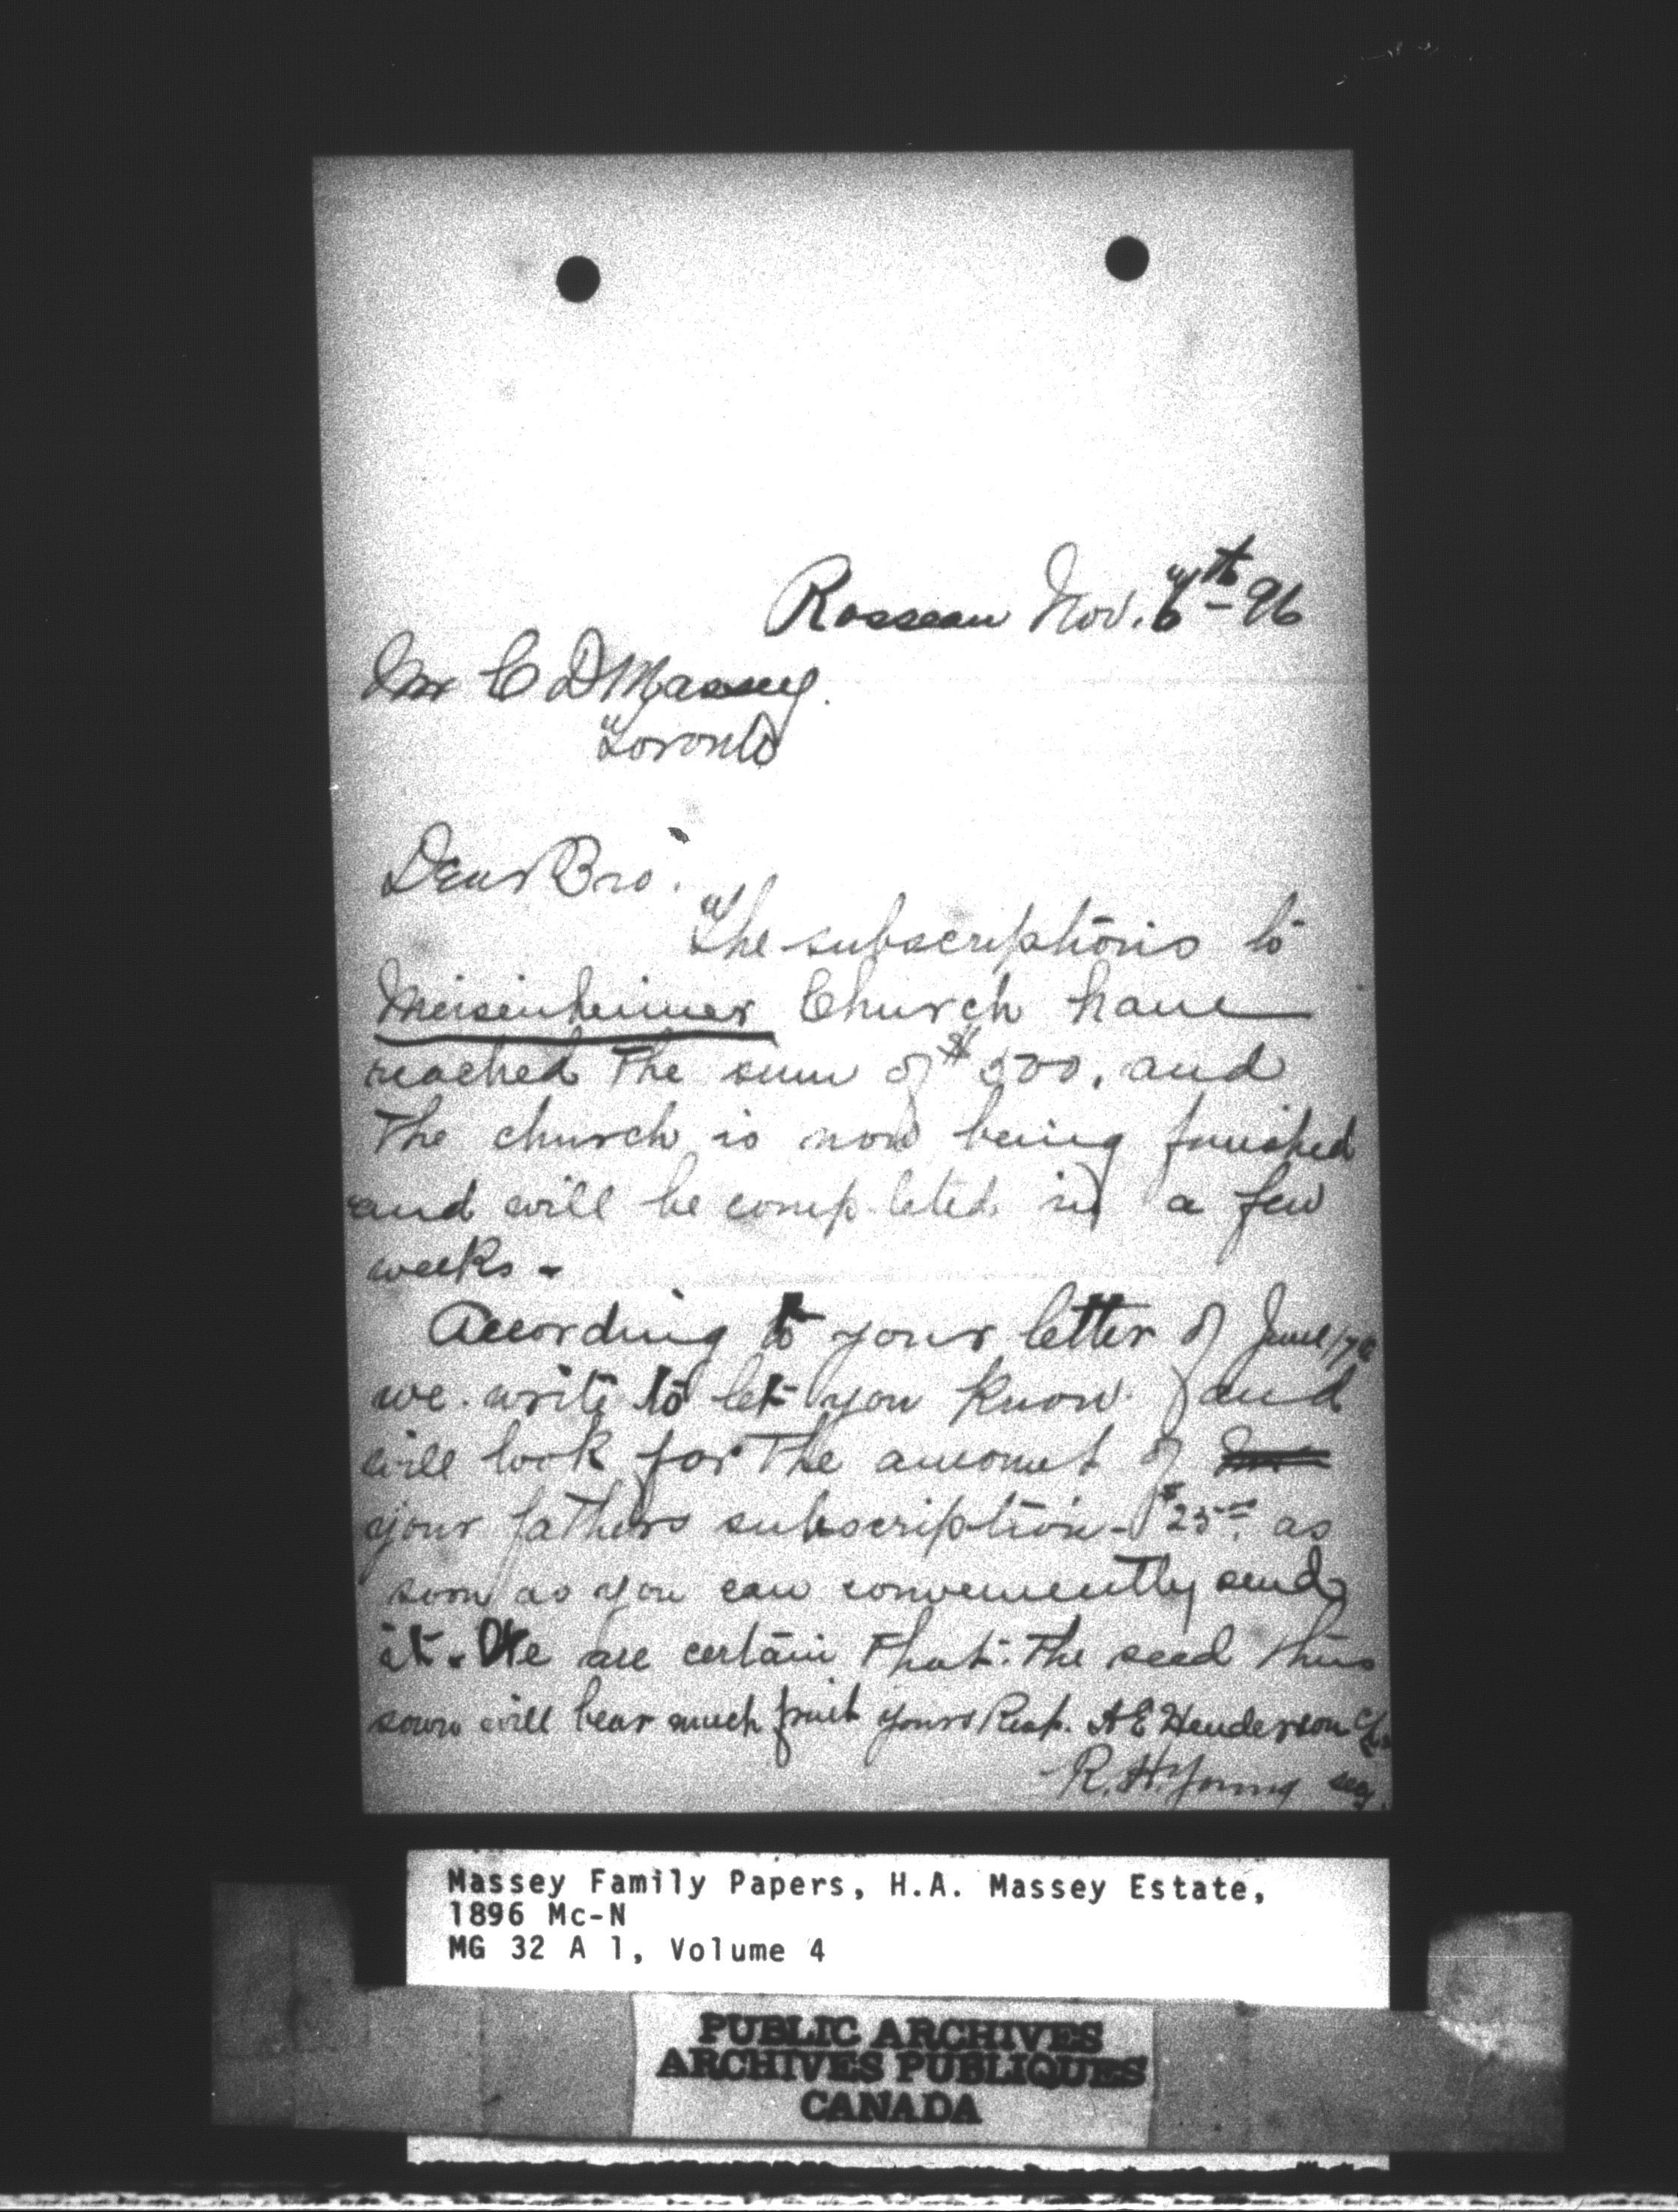 Rosseau Nov. 6th - 96
Mr C D Massey.
Toronto
Dear Bro.
The subscriptions to
Meisenheimer Church have
reached the sum of $500. and
the church is now being finished
and will be completed in a few
weeks -
According to your letter of June 17th
we write to let you know and
will look for the amount of
your fathers subscription - $25.00 as
soon as you can conveniently send
it. We are certain that the seed thus
sown will bear much fruit yours Resp. A E Henderson
R. H. Young secy.
Massey Family Papers, H.A. Massey Estate,
1896 Mc-N
MG 32 A 1, Volume 4
PUBLIC ARCHIVES
ARCHIVES PUBLIQUES
CANADA